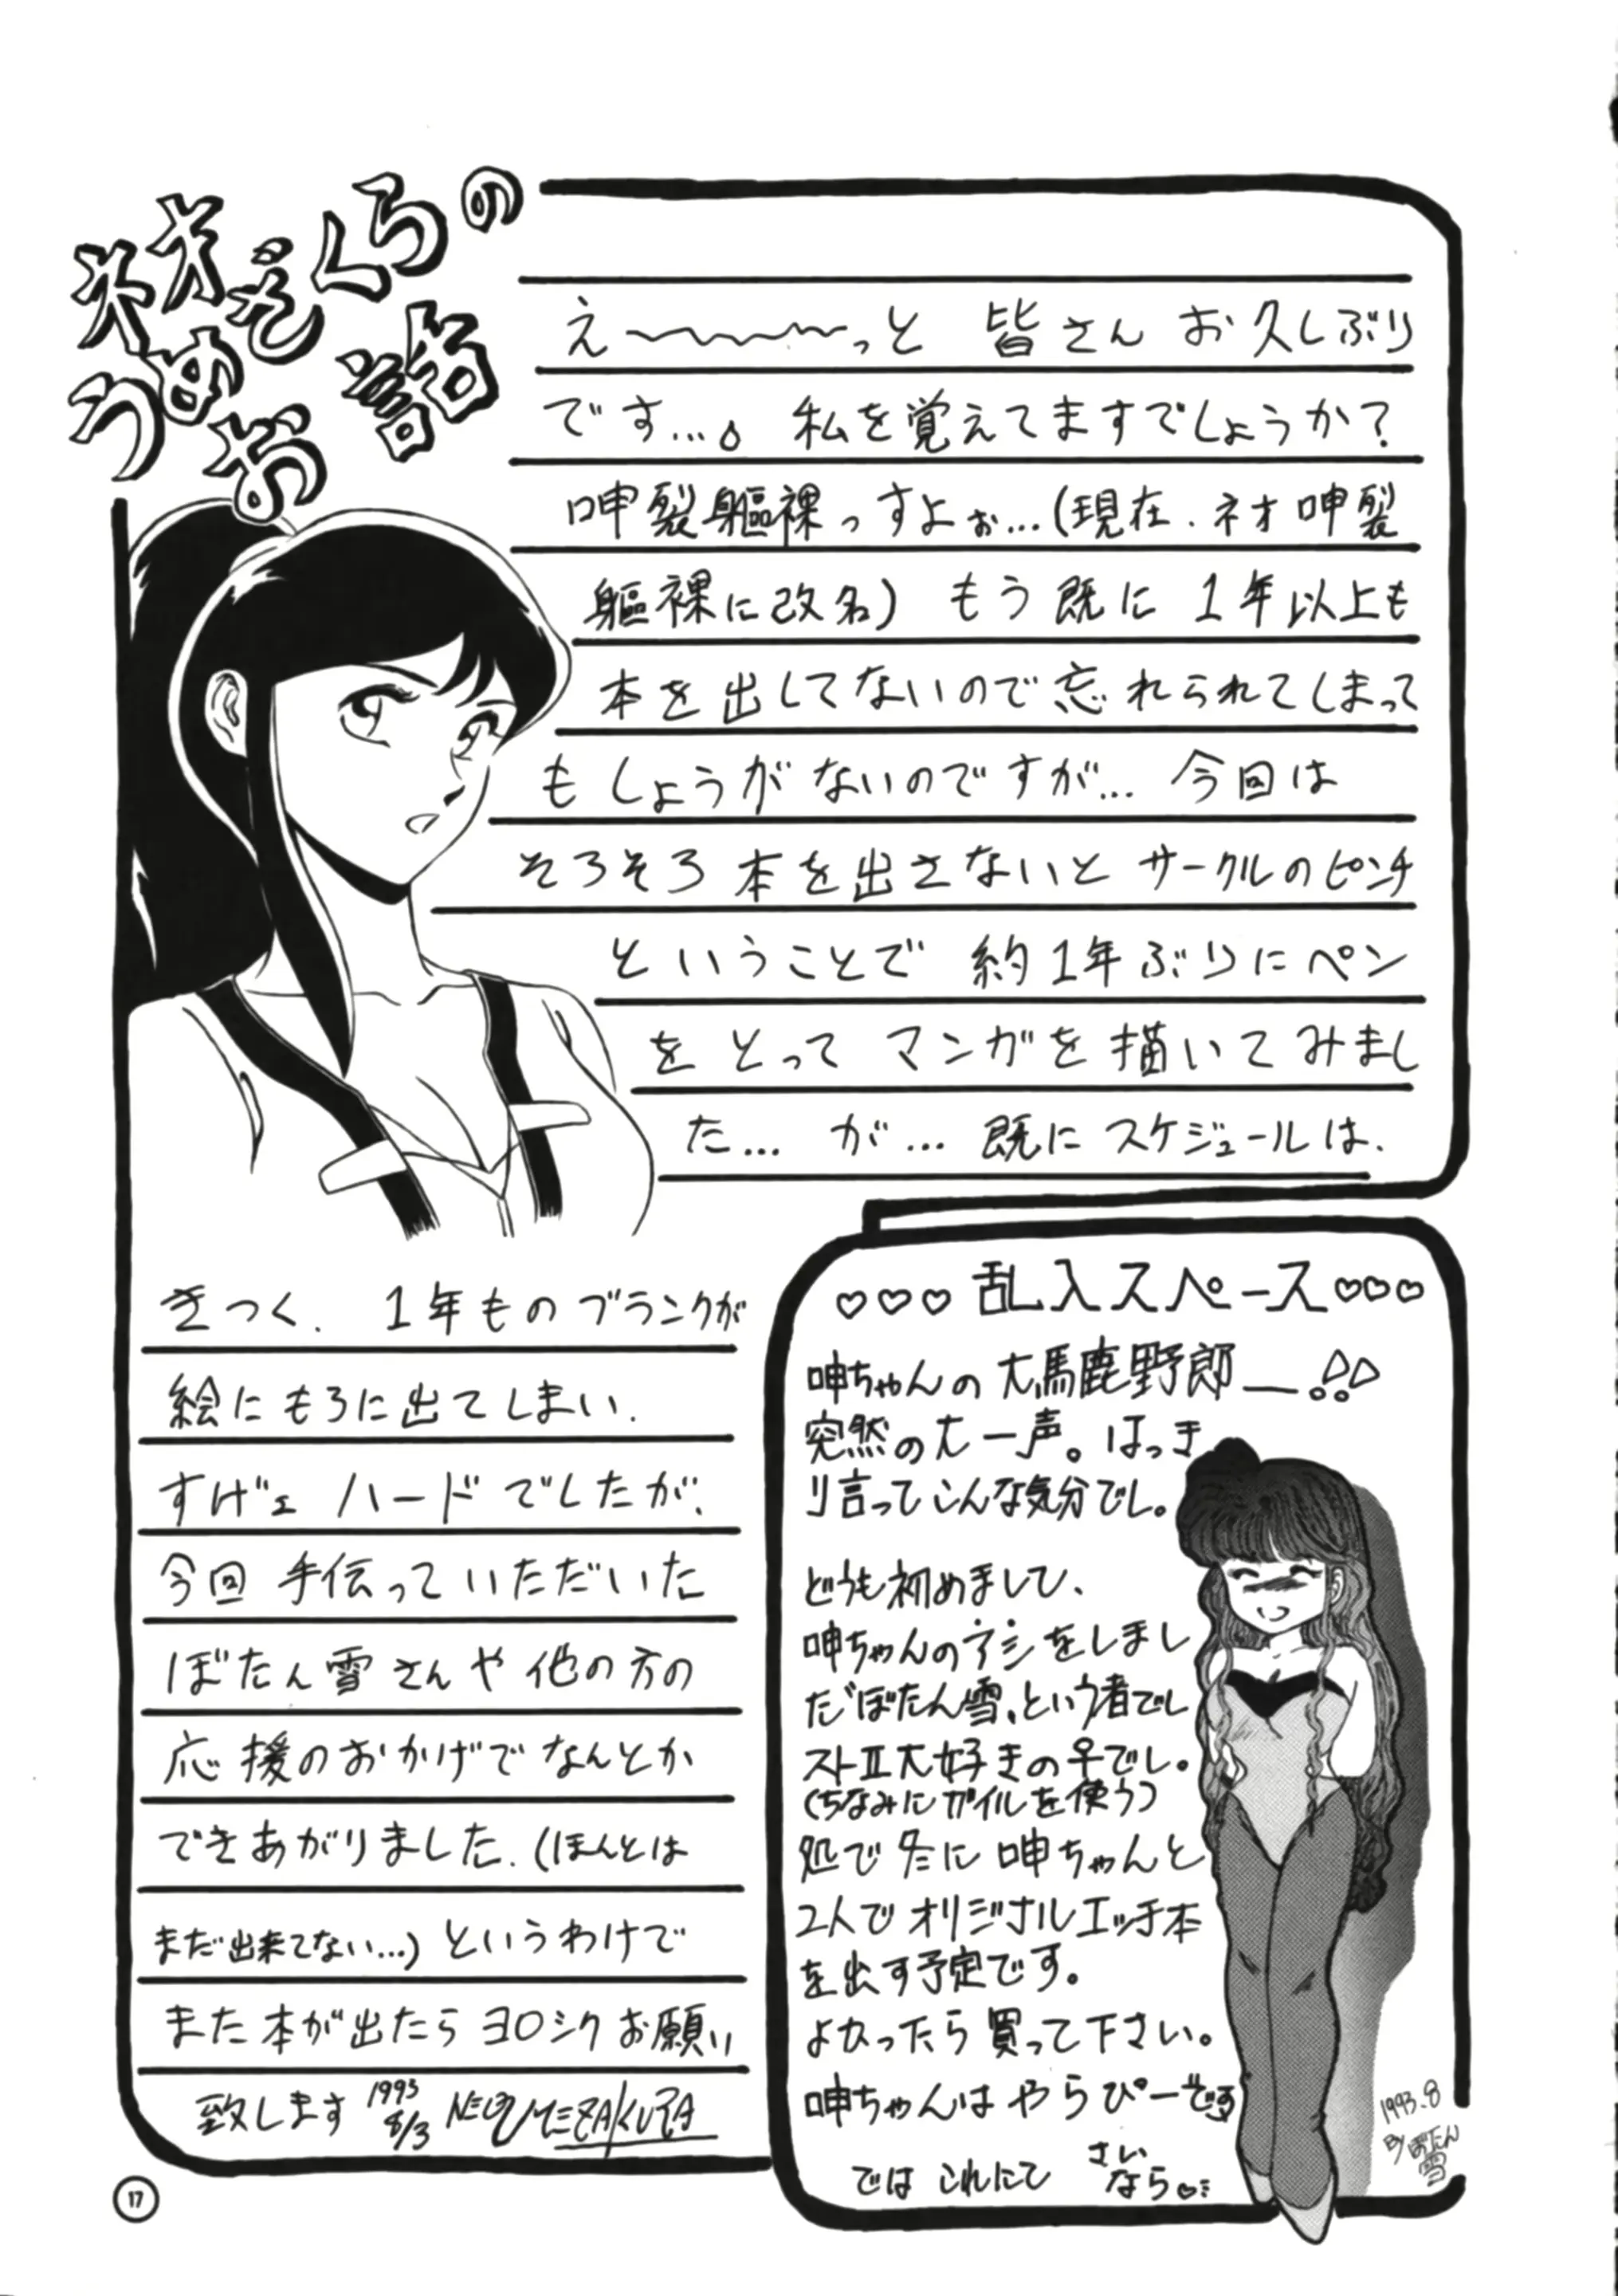 ネオうめざくらの
お話
え〜〜〜っと 皆さん お久しぶり
です…。私を覚えてますでしょうか?
呻裂軀裸っすよぉ…(現在、ネオ呻裂
軀裸に改名) もう既に 1年以上も
本を出してないので忘れられてしまって
もしょうがないのですが… 今回は
そろそろ本を出さないとサークルのピンチ
ということで 約1年ぶりにペン
をとって マンガを描いてみまし
た… が… 既にスケジュールは、
きつく、 1年ものブランクが
絵にもろに出てしまい、
すげェ ハードでしたが、
今回 手伝っていただいた
ぼたん雪さんや他の方の
応援のおかげでなんとか
できあがりました、(ほんとは
まだ出来てない…) というわけで
また本が出たらヨロシクお願い
致します 1993 8/3 NEO UMEZAKURA
♡♡♡乱入スペース♡♡♡
呻ちゃんの大馬鹿野郎―!!
突然の大一声。はっき
り言ってこんな気分でし。
どうも初めまして、
呻ちゃんのアシをしまし
た“ぼたん雪„という者でし
ストⅡ大好きの♀でし。
(ちなみにガイルを使う)
処で冬に呻ちゃんと
2人でオリジナルエッチ本
を出す予定です。
よかったら買って下さい。
呻ちゃんはやらぴーです
ではこれにて さい
なら。
1993.8
By ぼたん
雪
17